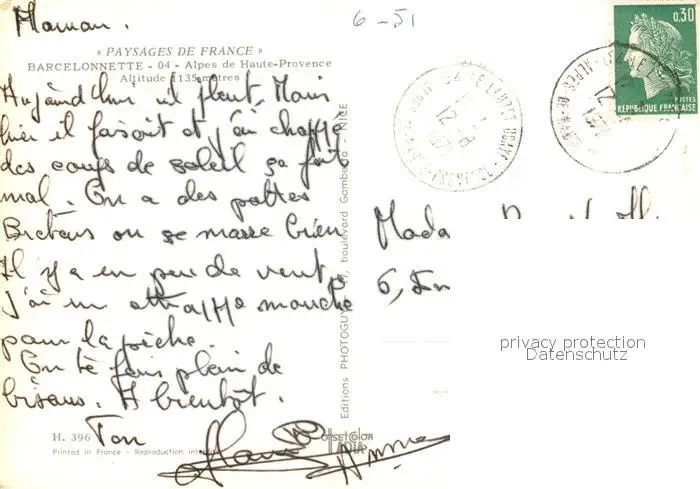 Maman.
6-51
0,30
« PAYSAGES DE FRANCE »
BARCELONNETTE - 04 - Alpes de Haute-Provence
Altitude 1135 mètres
POSTES
REPUBLIQUE FRANÇAISE
Aujourd'hui il pleut, Mais
hier il faisait et j'ai choppé
des coups de soleil ça fait
mal. On a des potes
Bretons on se marre bien
Il y a en peu de vent,
j'ai un attrappe mouche
pour la pêche.
On te fais plein de
bisous. A bientôt.
Ton
Editions PHOTOGUY, boulevard Gambetta - NICE
6,
privacy protection
Datenschutz
H. 396
Printed in France - Reproduction